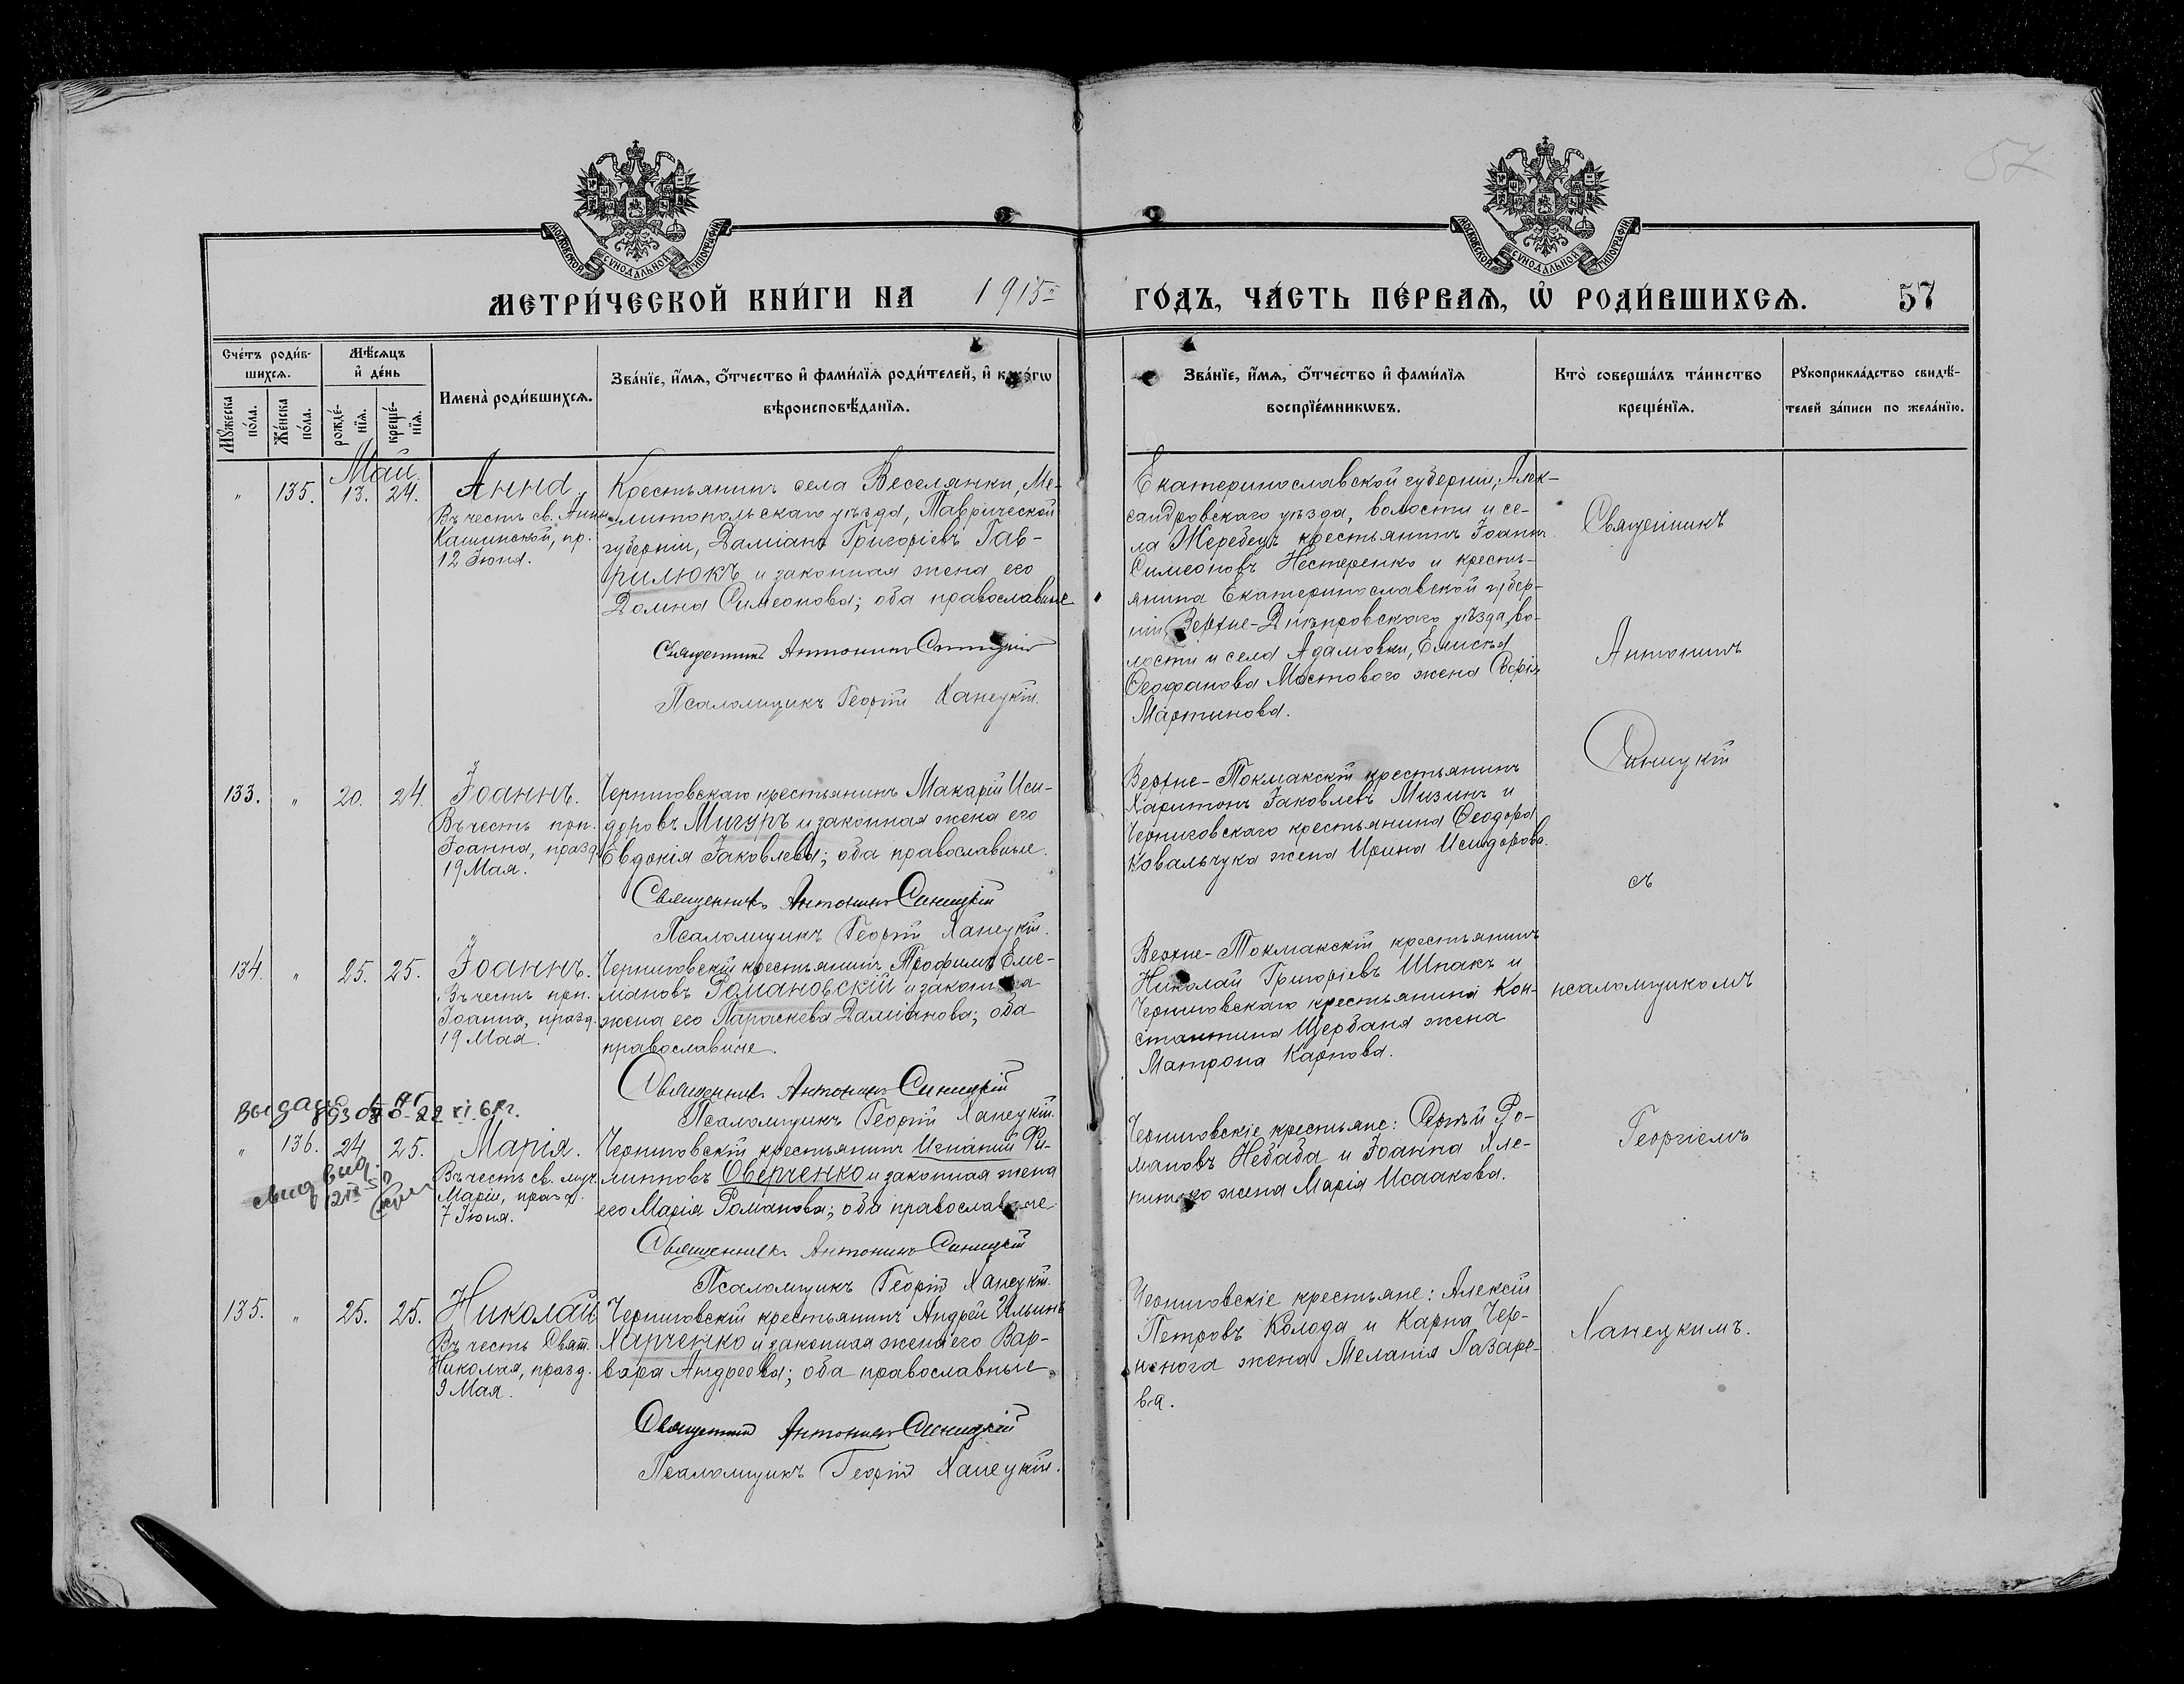 57
МОСКОВСКОЙ СѴНОДАЛЬНОЙ ТИПОГРАФІИ
МОСКОВСКОЙ СѴНОДАЛЬНОЙ ТИПОГРАФІИ
МЕТРИ́ЧЕСКОЙ КНИ́ГИ НА 1915й ГО́ДЪ, ЧА́СТЬ ПЕ́РВАѦ, Ѡ҆ РОДИ́ВШИХСѦ. 57
Сче́тъ роди́в-
шихсѧ.
Мꙋ́жеска по́ла.
Же́нска по́ла.
Мѣ́сѧцъ
и҆ де́нь
рожде́-нїѧ.
креще́-нїѧ.
Имена̀ роди́вшихсѧ.
Зва́нїе, и҆́мѧ, ѻ҆́тчество и҆ фами́лїѧ роди́телей, и҆
вѣроисповѣ́данїѧ.
Зва́нїе, и҆́мѧ, ѻ҆́тчество и҆ фами́лїѧ
воспрїе́мникѡвъ.
Кто̀ соверша́лъ та́инство
креще́нїѧ.
Рꙋкоприкла́дство свидѣ́-
телей за́писи по жела́нїю.
Май.
" 135. 13. 24. Анна.
Въ честь св. Анны
Кашинской, пр.
12 Іюня.
Крестьянинъ села Веселянки, Ме-
литопольскаго уѣзда, Таврической
губерніи, Даміанъ Григоріевъ Гав-
рилюкъ и законная жена его
Домна Симеонова; оба православные
Священникъ Антонинъ Синицкій
Псаломщикъ Георгій Ханецкій.
Екатеринославской губерніи, Алек-
сандровскаго уѣзда, волости и се-
ла Жеребецъ крестьянинъ Іоаннъ
Симеоновъ Нестеренко и кресть-
янина Екатеринославской губер-
ніи Верхне-Днѣпровскаго уѣзда, во-
лости и села Адамовки, Елисѣя
Ѳеофанова Мостового жена Софія
Мартинова.
133. " 20. 24. Іоаннъ.
Въ честь прп.
Іоанна, празд.
19 Мая.
Черниговскаго крестьянинъ Макарій Иси-
доровъ Мигуръ и законная жена его
Евдокія Іаковлева; оба православные.
Священникъ Антонинъ Синицкій
Псаломщикъ Георгій Ханецкій.
Верхне-Токмакскій крестьянинъ
Харитонъ Іаковлевъ Мизинъ и
Черниговскаго крестьянина Ѳеодора
Ковальчука жена Ирина Исидорова.
134. " 25. 25. Іоаннъ.
Въ честь прп.
Іоанна, празд.
19 Мая.
Черниговскій крестьянинъ Трофимъ Еме-
ліановъ Романовскій и законная
жена его Параскева Даміанова; оба
православные.
Священникъ Антонинъ Синицкій
Псаломщикъ Георгій Ханецкій.
Верхне-Токмакскій крестьянинъ
Николай Григоріевъ Шпакъ и
Черниговскаго крестьянина Кон-
стантина Щербаня жена
Матрона Карпова.
" 136. 24. 25. Марія.
Въ честь св. муч.
Маріи, празд.
7 Іюня.
Черниговскій крестьянинъ Игнатій Фи-
липповъ Оверченко и законная жена
его Марія Романова; оба православные
Священникъ Антонинъ Синицкій
Псаломщикъ Георгій Ханецкій.
Черниговскіе крестьяне: Сергѣй Ро-
мановъ Небаба и Іоанна Хле-
жена Марія Исаакова.
135. " 25. 25. Николай
Въ честь Свят.
Николая, празд.
9 Мая.
Черниговскій крестьянинъ Андрей Ильинъ
Харченко и законная жена его Вар-
вара Андреева; оба православные.
Священникъ Антонинъ Синицкій
Псаломщикъ Георгій Ханецкій.
Черниговскіе крестьяне: Алексій
Петровъ Колода и Карпа Чер-
нонога жена Меланія Лазаре-
ва.
Священникъ
Антонинъ
Синицкій
съ
псаломщикомъ
Георгіемъ
Ханецкимъ.